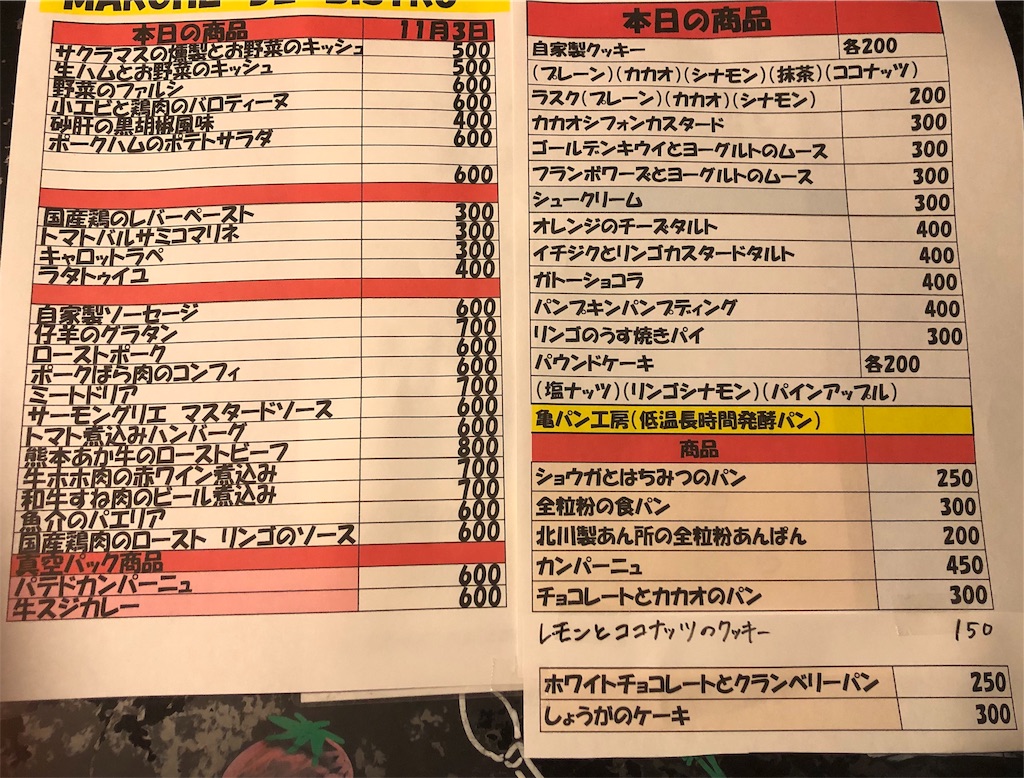 MARCHE DE BISTRO
本日の商品 11月3日
サクラマスの燻製とお野菜のキッシュ 500
生ハムとお野菜のキッシュ 500
野菜のファルシ 600
小エビと鶏肉のバロティーヌ 600
砂肝の黒胡椒風味 400
ポークハムのポテトサラダ 600
600
国産鶏のレバーペースト 300
トマトバルサミコマリネ 300
キャロットラペ 300
ラタトゥイユ 400
自家製ソーセージ 600
仔羊のグラタン 700
ローストポーク 600
ポークばら肉のコンフィ 600
ミートドリア 700
サーモングリエ マスタードソース 600
トマト煮込みハンバーグ 600
熊本あか牛のローストビーフ 800
牛ホホ肉の赤ワイン煮込み 700
和牛すね肉のビール煮込み 700
魚介のパエリア 600
国産鶏肉のロースト リンゴのソース 600
真空パック商品
パテドカンパーニュ 600
牛スジカレー 600
本日の商品
自家製クッキー 各200
(プレーン)(カカオ)(シナモン)(抹茶)(ココナッツ)
ラスク(プレーン)(カカオ)(シナモン) 200
カカオシフォンカスタード 300
ゴールデンキウイとヨーグルトのムース 300
フランボワーズとヨーグルトのムース 300
シュークリーム 300
オレンジのチーズタルト 400
イチジクとリンゴカスタードタルト 400
ガトーショコラ 400
パンプキンパンプディング 400
リンゴのうす焼きパイ 300
パウンドケーキ 各200
(塩ナッツ)(リンゴシナモン)(パインアップル)
亀パン工房(低温長時間発酵パン)
商品
ショウガとはちみつのパン 250
全粒粉の食パン 300
北川製あん所の全粒粉あんぱん 200
カンパーニュ 450
チョコレートとカカオのパン 300
レモンとココナッツのクッキー 150
ホワイトチョコレートとクランベリーパン 250
しょうがのケーキ 300